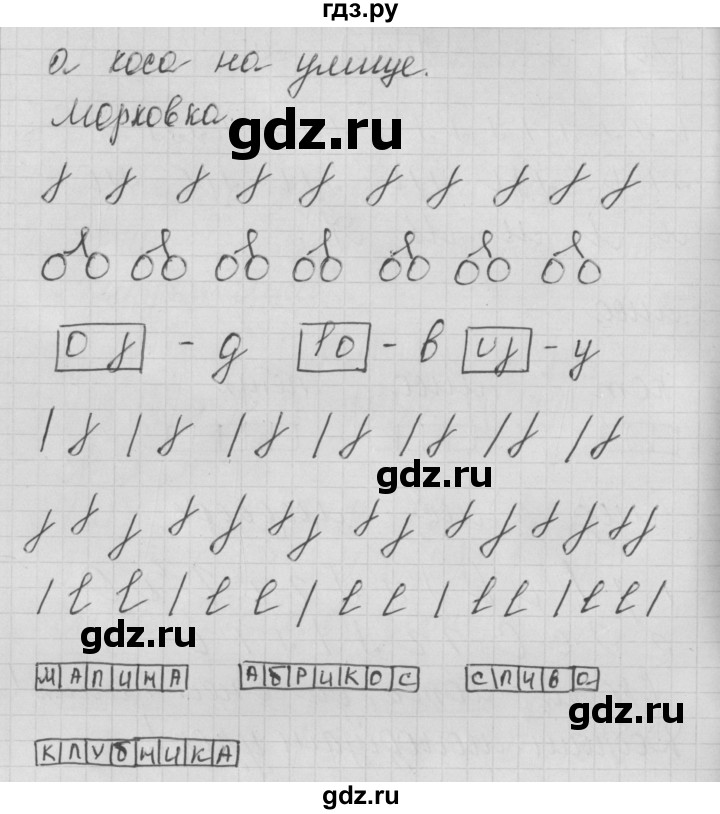 гдз.ру
а коса на улице.
Морковка.
gdz.ru
- д
- в
- у
gdz.ru
gdz.ru
МАЛИНА АБРИКОС СЛИВО
gdz.ru
КЛУБНИКА
gdz.ru